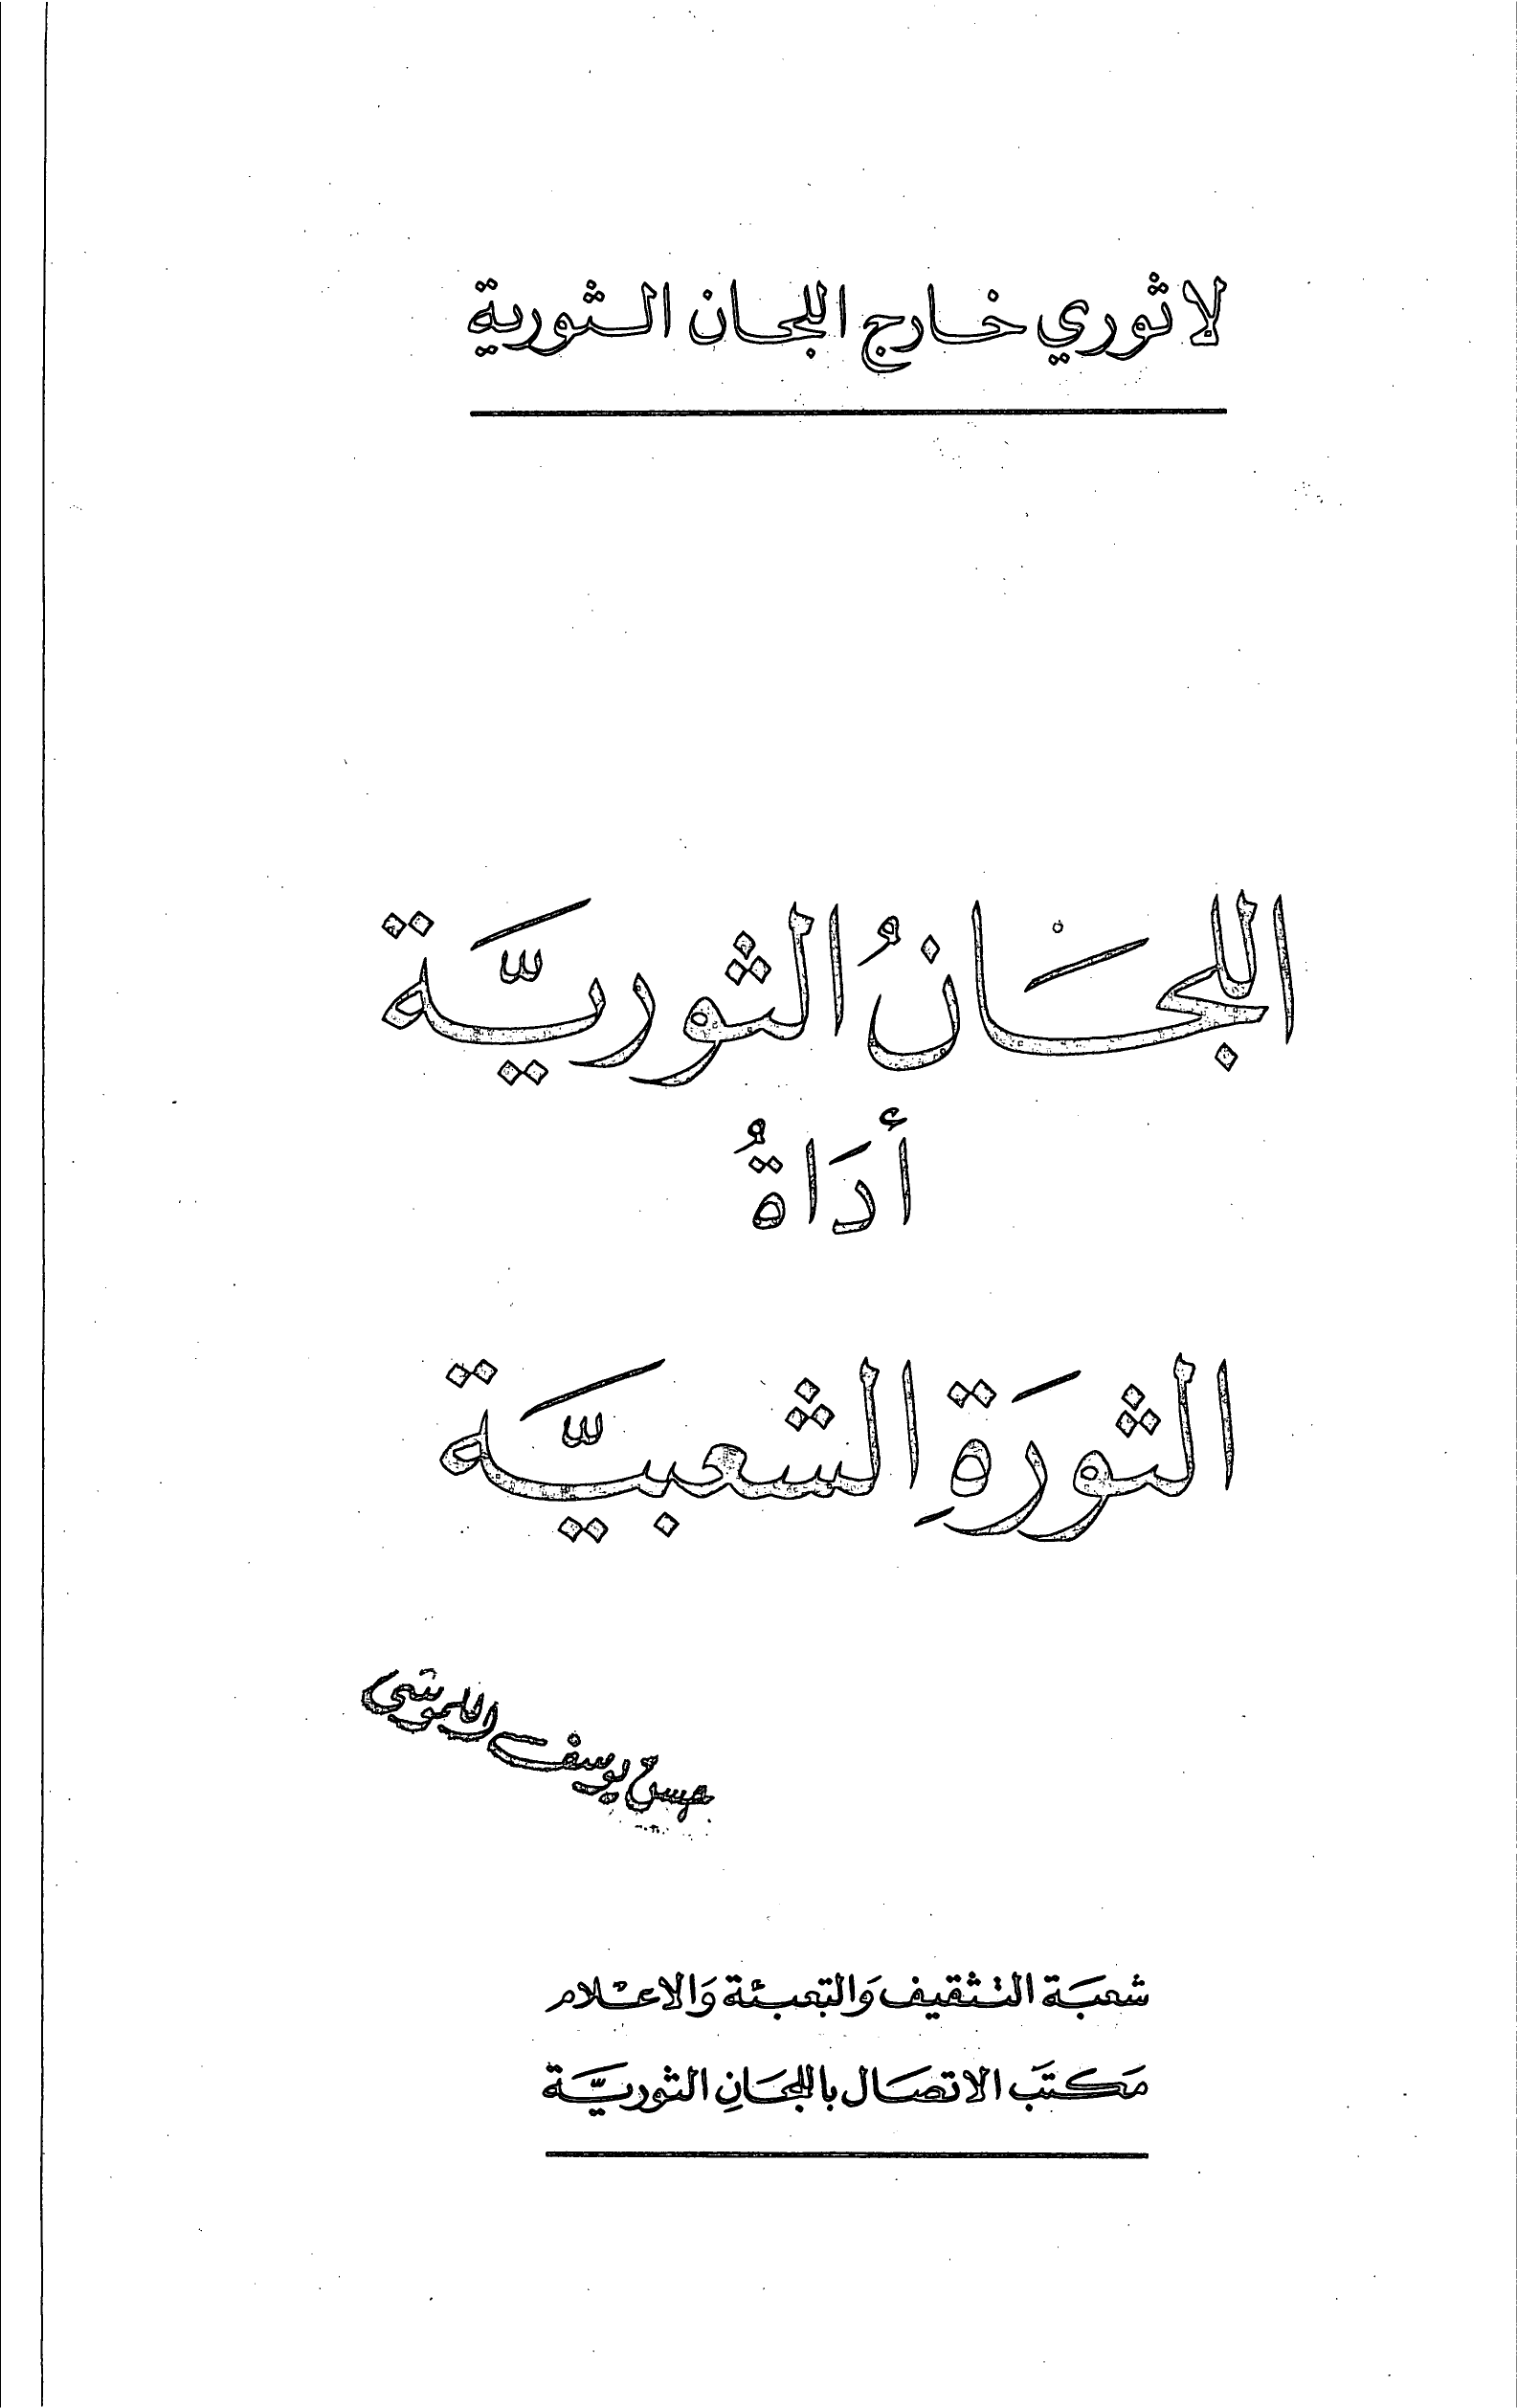 لا ثوري خارج اللجان الثورية
اللجَانُ الثوريَّة
أدَاةُ
الثورَةِ الشعبيَّة
حسن يوسف
شعبَة التثقيف وَالتعبئة وَالاعْلام
مَكتَب الاتصَال باللجَانِ الثوريَّة